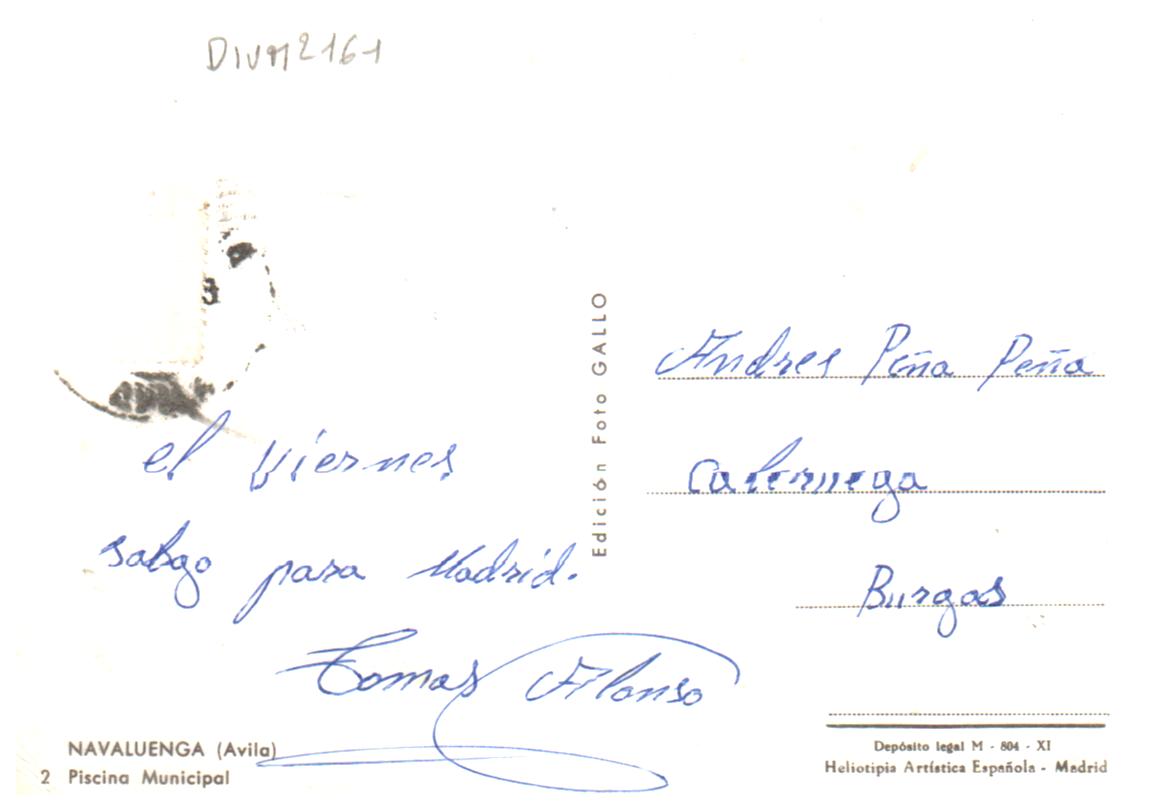 DIVM2161
el viernes
salgo para Madrid.
Tomas Alonso
NAVALUENGA (Avila)
2 Piscina Municipal
Edición Foto GALLO
Andres Peña Peña
Caleruega
Burgos
Depósito legal M - 804 - XI
Heliotipia Artística Española - Madrid